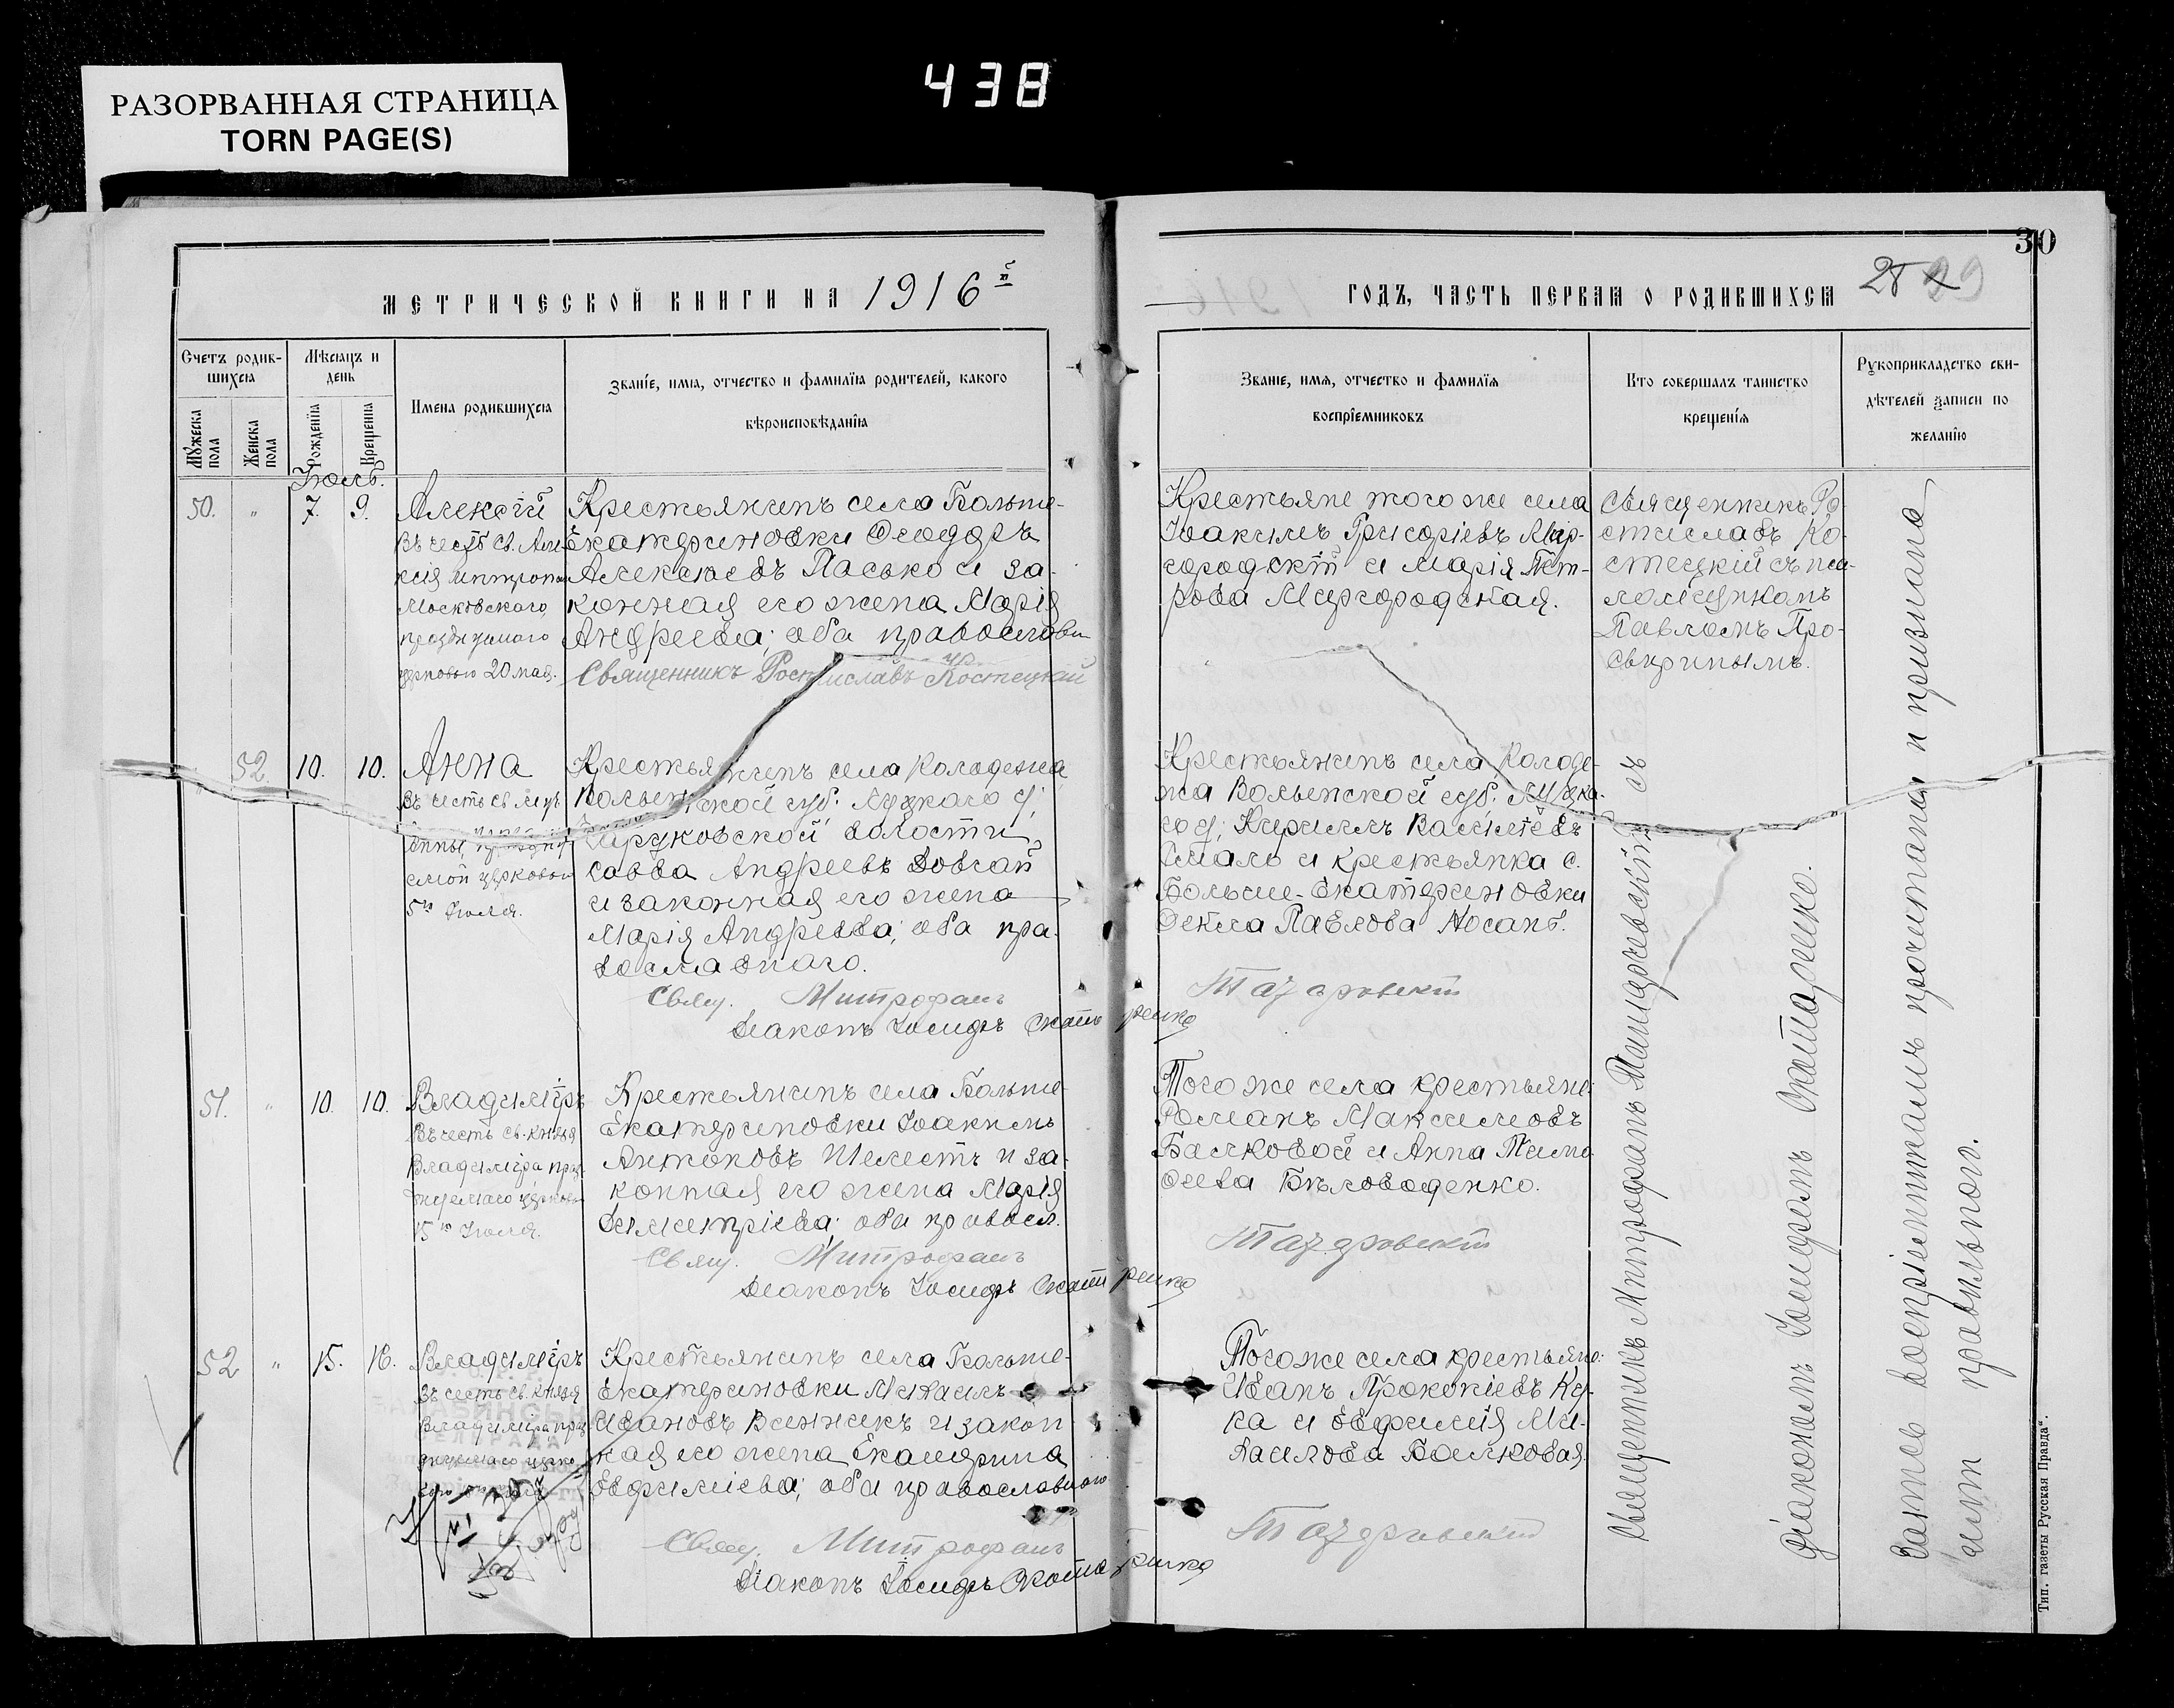 438
РАЗОРВАННАЯ СТРАНИЦА
TORN PAGE(S)
30
МЕТРИЧЕСКОЙ КНИГИ НА 1916й
ГОДЪ, ЧАСТЬ ПЕРВАЯ О РОДИВШИХСЯ
29
Счетъ родив-
шихся
Мѣсяцъ и
день
Мужеска
пола
Женска
пола
Рожденія
Крещенія
Имена родившихся
Званіе, имя, отчество и фамилія родителей, какого
вѣроисповѣданія
Званіе, имя, отчество и фамилія
воспріемниковъ
Кто совершалъ таинство
крещенія
Рукоприкладство сви-
дѣтелей записи по
желанію
Іюль.
50. " 7. 9.
Алексій
въ честь св. Але-
ксія митропол
Московскаго
празднуемаго
церковью 20 мая.
Крестьянинъ села Больше-
Екатериновки Ѳеодоръ
Алексѣевъ Пасько и за-
конная его жена Марія
Андреева; оба православн
Священникъ Ростиславъ Костецкій
Крестьяне того же села
Іоакимъ Григоріевъ Мир-
городскій и Марія Пет-
рова Миргородская.
Священникъ Ро-
стиславъ Ко-
стецкій съ пса-
ломщикомъ
Павломъ Про-
свиринымъ.
52. 10. 10.
Анна
въ честь св.
Анны
емой церковью
5го Іюля.
Крестьянинъ села Колодежа
Волынской губ. Луцкаго у;
волости
Савва Андреевъ Довгай
и законная его жена
Марія Андреева; оба пра-
вославнаго.
Свящ. Митрофанъ
Діаконъ Іосифъ
Крестьянинъ села Колоде-
жа Волынской губ. Луцка-
го у; Кириллъ Василіевъ
и крестьянка с.
Больше-Екатериновки
Ѳекла Павлова Носань.
51. " 10. 10.
Владиміръ
въ честь св. князя
Владиміра праз
днуемаго церковью
15го Іюля.
Крестьянинъ села Больше-
Екатериновки Іоакимъ
Антоновъ Шелестъ и за-
конная его жена Марія
Димитріева; оба правосл.
Свящ. Митрофанъ
Діаконъ Іосифъ
Того же села крестьяне:
Романъ Максимовъ
Балковой и Анна Тимо
ѳеева Бѣловоденко.
52 " 15. 16.
Владиміръ
въ честь св. князя
Владиміра праз
днуемаго церко
Крестьянинъ села Больше-
Екатериновки Михаилъ
Ивановъ Винникъ и закон
ная его жена Екатерина
Евфиміева; оба православнаго
Свящ. Митрофанъ
Діаконъ Іосифъ
Того же села крестьяне:
Иванъ Прокопіевъ Ку-
ка и Евфимія Ми-
хаилова Балковая.
Священникъ Митрофанъ съ
діакономъ Іосифомъ
Запись воспріемниками прочитана и признана
ими правильною.
Тип. газеты „Русская Правда".